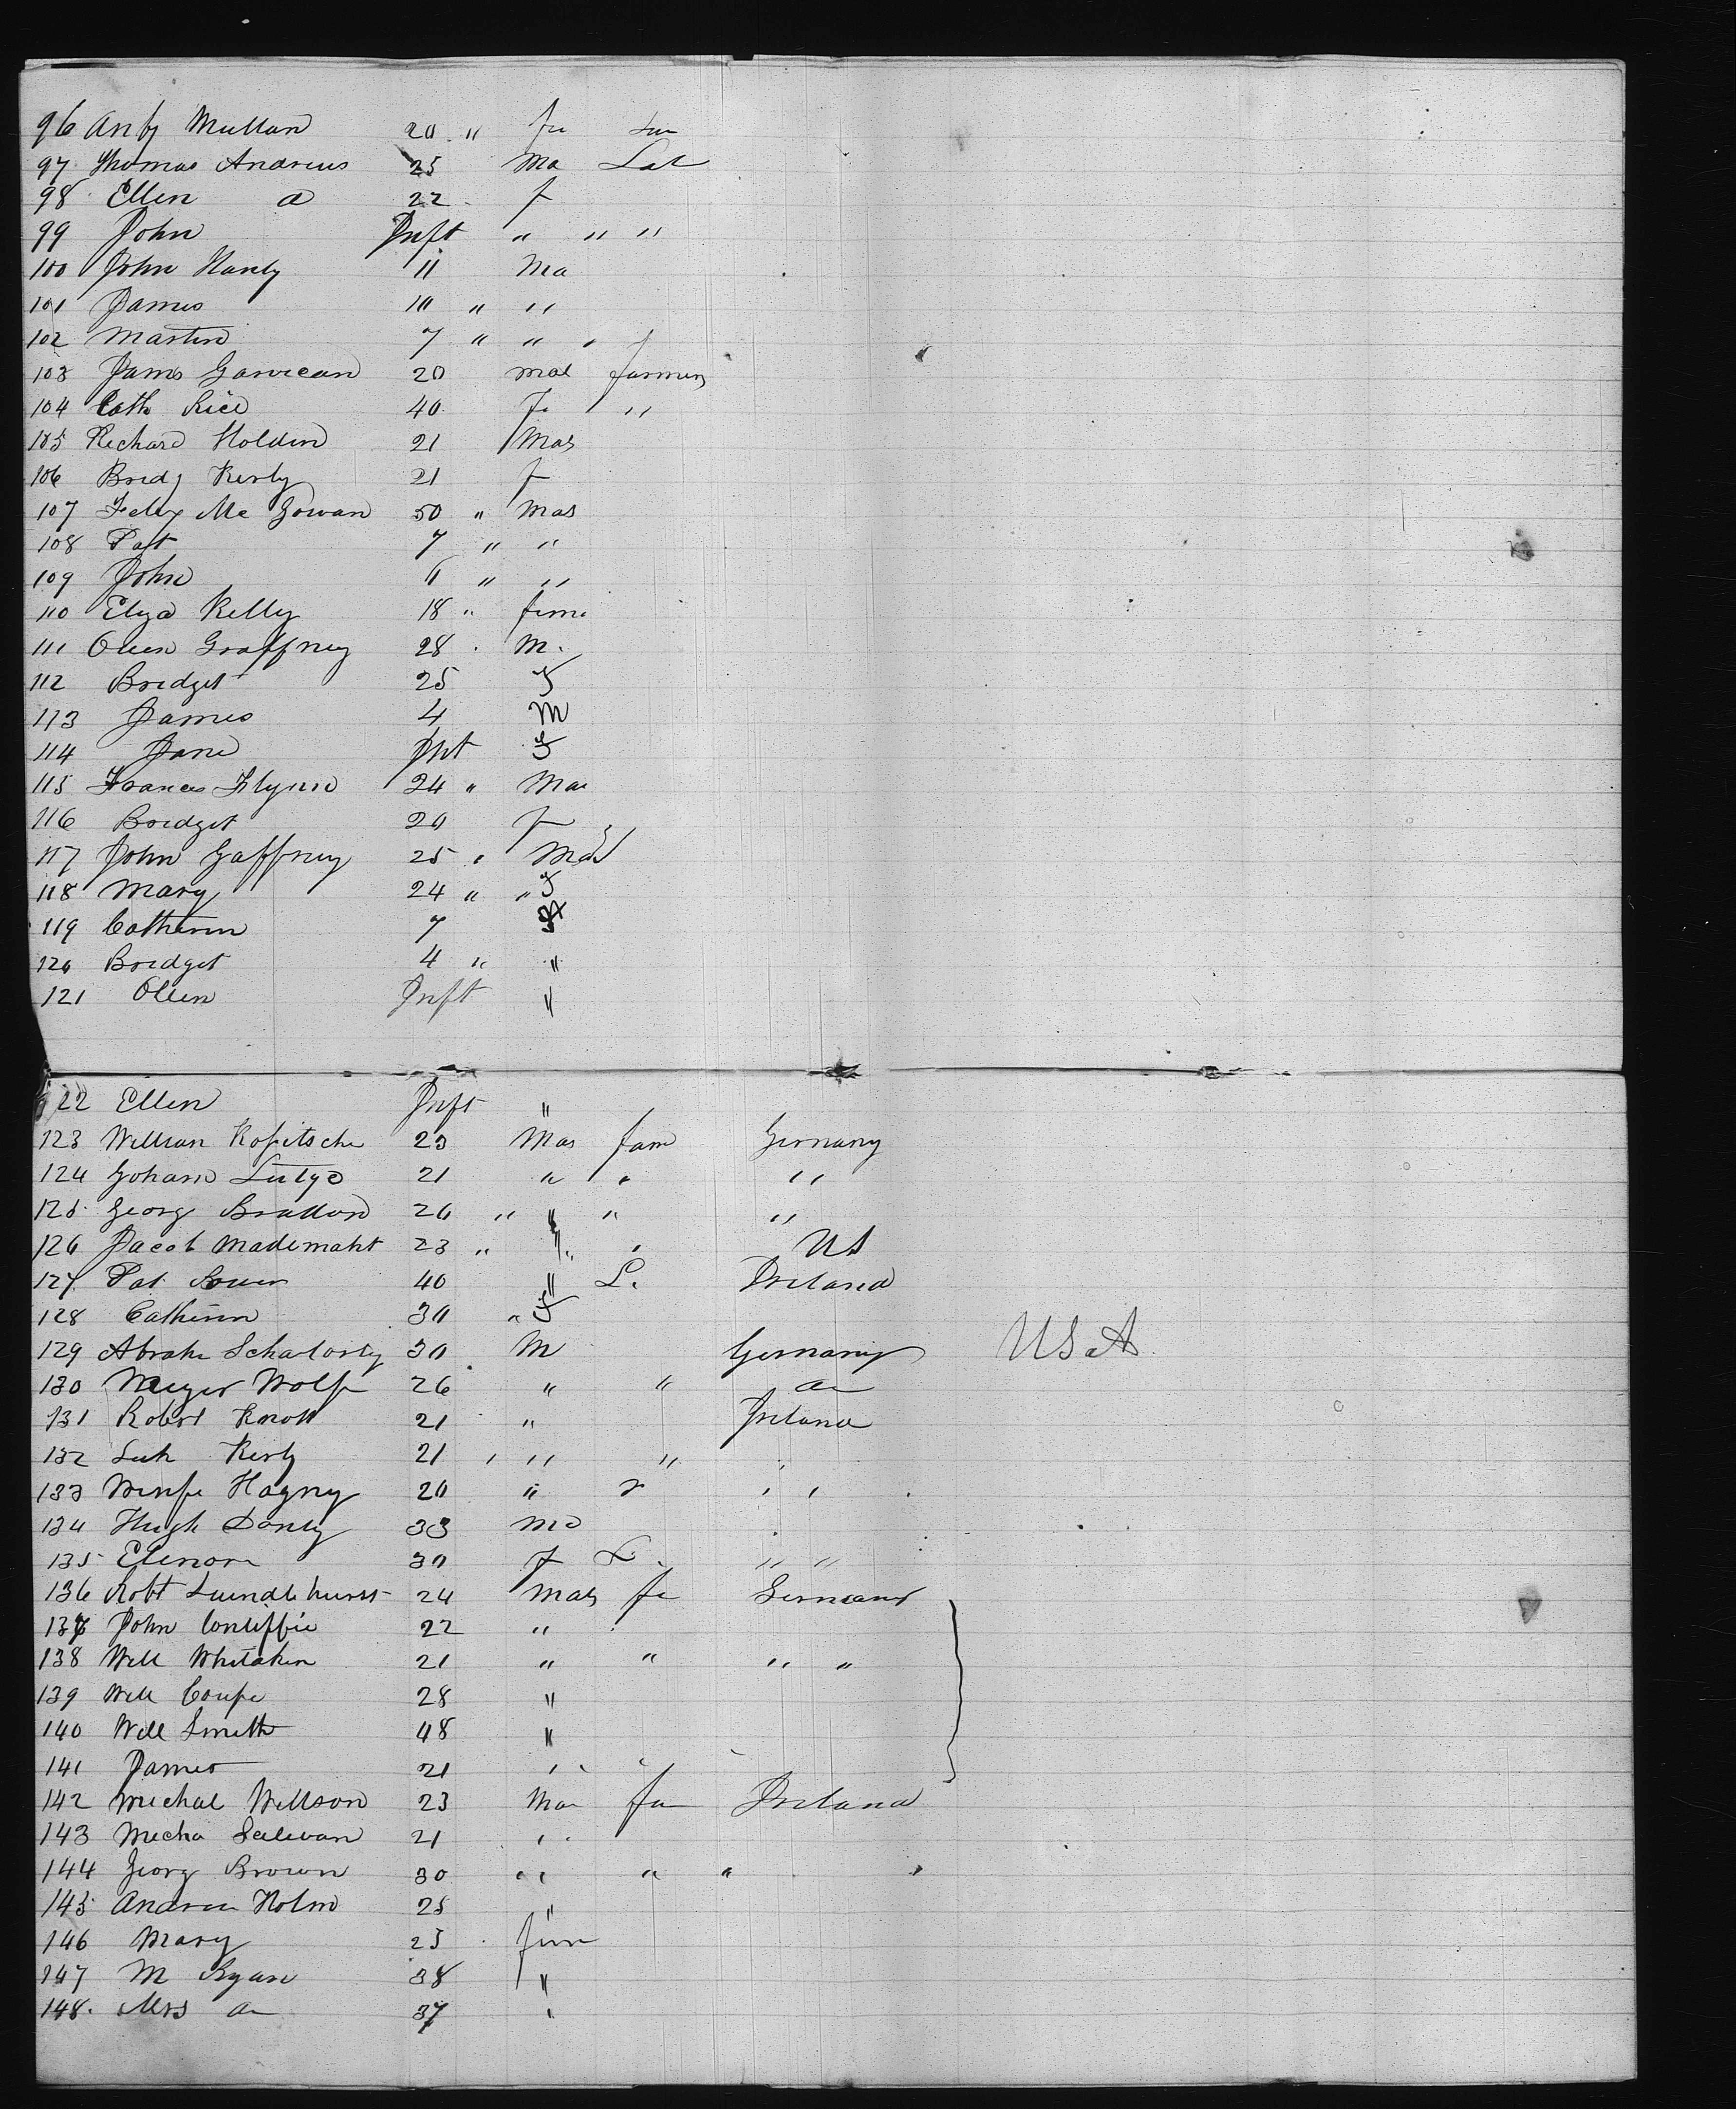 96 Mullan 20 " fe
97 Thomas Andrews 25 Ma Lab
98 Ellen 22 f
99 John Inft " " "
100 John Hanly 11 Ma
101 James 10 " "
102 Martin 7 " " "
103 James Garvican 20 mal farmers
104 Cath Rice 40 Fe "
105 Richard Holden 21 Mas
106 Bridg Kerly 21 f
107 Felix Mc Gowan 50 " Mas
108 Pat 7 " "
109 John 6 " "
110 Eliza Kelly 18 " feme
111 Owen Graffney 28 . M.
112 Bridget 25 F
113 James 4 M
114 Jane Inft F
115 Frances Flynn 24 " Mae
116 Bridget 20 f
117 John Gaffney 25 " Mas
118 Mary 24 " " F
119 Catherin 7 F
120 Bridget 4 " "
121 Owen Inft "
122 Ellen Inft "
123 William Kopitsche 23 Mas farm Germany
124 Johann Lutge 21 " " "
125 Georg 26 " " " "
126 Jacob Mademaht 23 " " " US
127 Pat 40 " L. Ireland
128 Catherin 30 " F
129 30 M Germany USA
130 Meyer Wolf 26 " "
131 Robert Knott 21 " Ireland
132 Kerly 21 " " " "
133 Winfe Hagny 20 " " "
134 Hugh Danly 33 Ma
135 Elenora 30 f L. " "
136 Robt 24 Mas fa German
137 John 22 "
138 Will Whitaken 21 " " " "
139 Will Coupe 28 "
140 Will Smith 48 "
141 James 21 " " "
142 Michal Willson 23 Mae fa Ireland
143 Micha Sulivan 21 "
144 Georg Brown 30 " " " "
145 Andrew Holm 25 "
146 Mary 25 . fem
147 M Ryan 38 "
148. Mrs 37 "